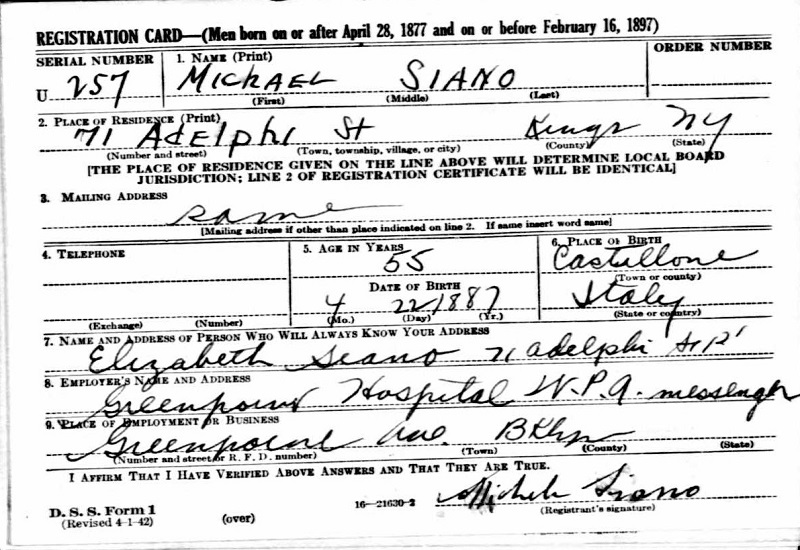 REGISTRATION CARD—(Men born on or after April 28, 1877 and on or before February 16, 1897)
SERIAL NUMBER 1. NAME (Print) ORDER NUMBER
U 257 MICHAEL SIANO
(First) (Middle) (Last)
2. PLACE OF RESIDENCE (Print)
71 ADELPHI St Kings NY
(Number and street) (Town, township, village, or city) (County) (State)
[THE PLACE OF RESIDENCE GIVEN ON THE LINE ABOVE WILL DETERMINE LOCAL BOARD
JURISDICTION; LINE 2 OF REGISTRATION CERTIFICATE WILL BE IDENTICAL]
3. MAILING ADDRESS
same
[Mailing address if other than place indicated on line 2. If same insert word same]
4. TELEPHONE 5. AGE IN YEARS 6. PLACE OF BIRTH
55 Castullone
(Town or county)
DATE OF BIRTH Italy
4 22 1887
(Exchange) (Number) (Mo.) (Day) (Yr.) (State or country)
7. NAME AND ADDRESS OF PERSON WHO WILL ALWAYS KNOW YOUR ADDRESS
Elizabeth Siano 71 adelphi St
8. EMPLOYER'S NAME AND ADDRESS
Greenpoint Hospital W.P.A. messenger
9. PLACE OF EMPLOYMENT OR BUSINESS
Greenpoint Ave. BKlyn
(Number and street or R. F. D. number) (Town) (County) (State)
I AFFIRM THAT I HAVE VERIFIED ABOVE ANSWERS AND THAT THEY ARE TRUE.
Michele Siano
D. S. S. Form 1 16—21630-2 (Registrant's signature)
(Revised 4-1-42) (over)